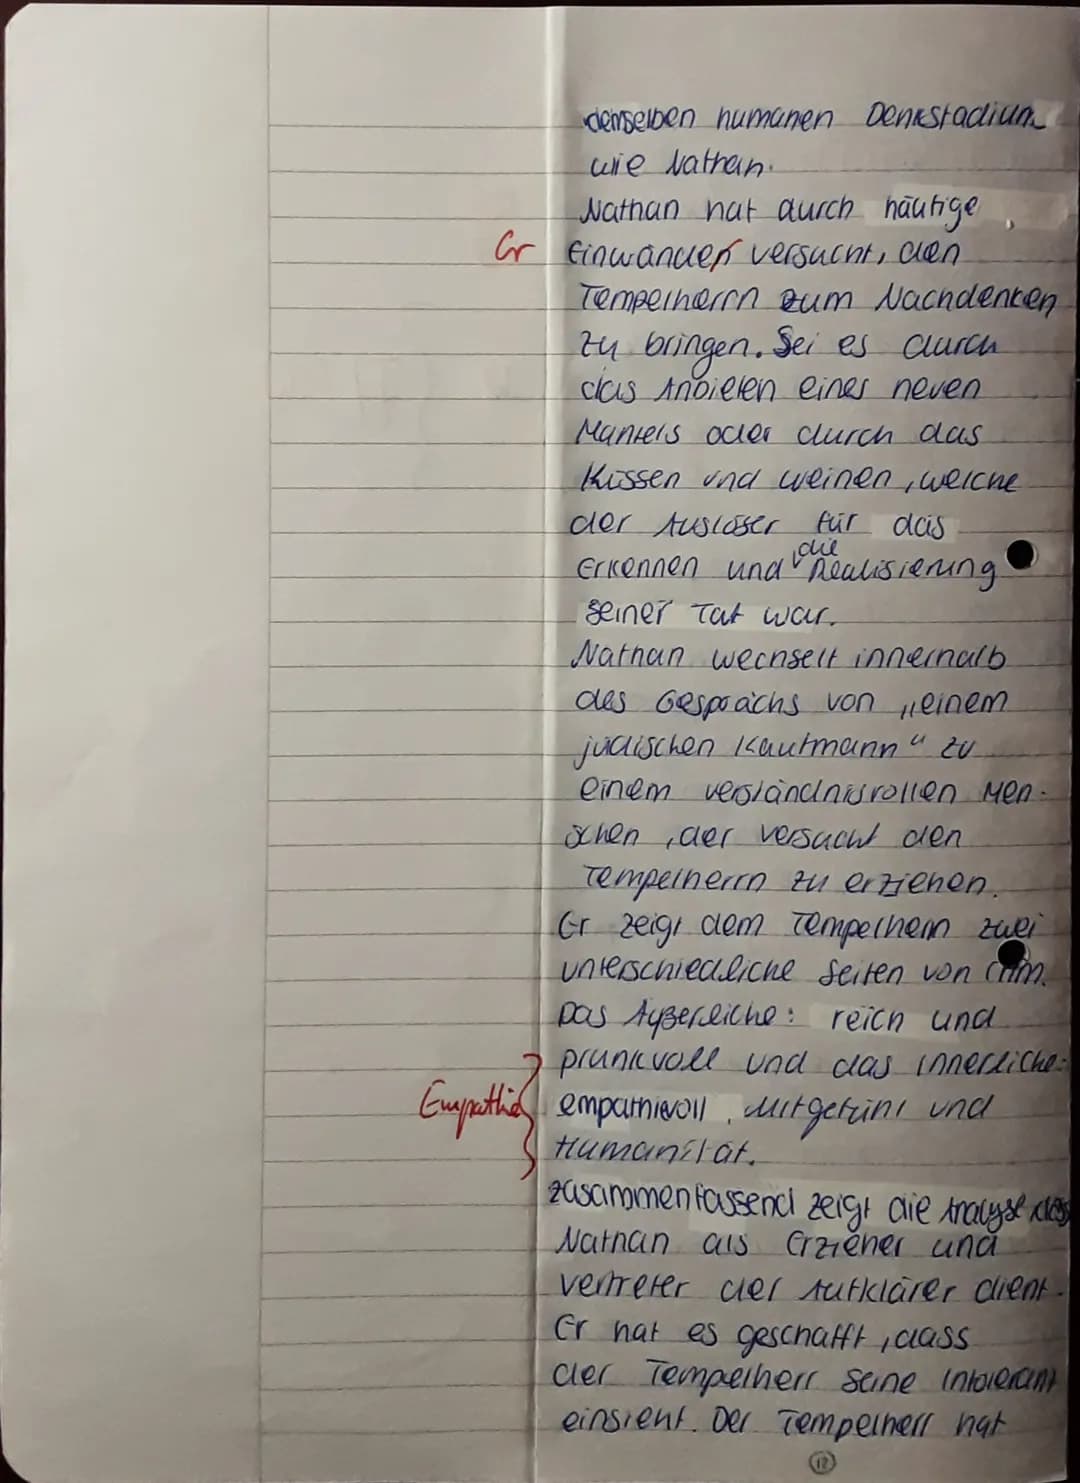 demselben humanen Denkstadium
wie Nathan.
Nathan hat durch häufige
Gr Einwänden versucht, den
Tempelherrn zum Nachdenken
zu bringen. Sei es durch
das Anbieten eines neuen
Mantels oder durch das
Küssen und weinen, welche
der Auslöser für das
Erkennen und die Realisierung
seiner Tat war.
Nathan wechselt innerhalb
des Gesprächs von „einem
jüdischen Kaufmann“ zu
einem verständnisvollen Men-
schen, der versucht den
Tempelherrn zu erziehen.
Er zeigt dem Tempelherrn zwei
unterschiedliche Seiten von ihm.
Das Äußerliche: reich und
prunkvoll und das innerliche:
Empathie empathievoll, Mitgefühl und
Humanität.
Zusammenfassend zeigt die Analyse, dass
Nathan als Erzieher und
Vertreter der Aufklärer dient.
Er hat es geschafft, dass
der Tempelherr seine Intolerant
einsieht. Der Tempelherr hat
12